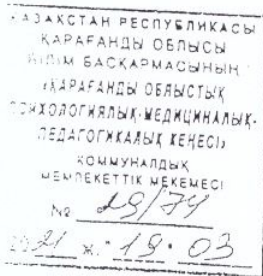 ҚАЗАҚСТАН РЕСПУБЛИКАСЫ
ҚАРАҒАНДЫ ОБЛЫСЫ
БІЛІМ БАСҚАРМАСЫНЫҢ
«ҚАРАҒАНДЫ ОБЛЫСТЫҚ
ПСИХОЛОГИЯЛЫҚ-МЕДИЦИНАЛЫҚ-
ПЕДАГОГИКАЛЫҚ КЕҢЕСІ»
КОММУНАЛДЫҚ
МЕМЛЕКЕТТІК МЕКЕМЕСІ
№ 19/74
2021 ж. "19" 03